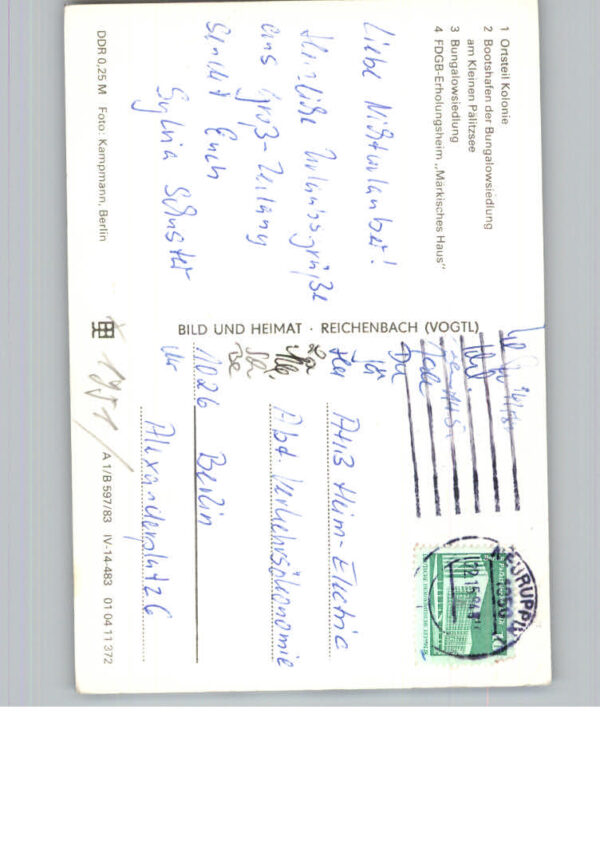 1 Ortsteil Kolonie
2 Bootshafen der Bungalowsiedlung
am Kleinen Pälitzsee
3 Bungalowsiedlung
4 FDGB-Erholungsheim „Märkisches Haus"
Liebe Nichturlauber!
Herzliche Urlaubsgrüße
aus Groß-Zerlang
sendet Euch
Sylvia Schuster
DDR 0,25 M Foto: Kampmann, Berlin
BILD UND HEIMAT · REICHENBACH (VOGTL)
NEURUPPIN
1950
AHB Heim-Electric
Abt. Verkehrsökonomie
1026 Berlin
Alexanderplatz 6
A 1/B 597/83 IV-14-483 01 04 11 372